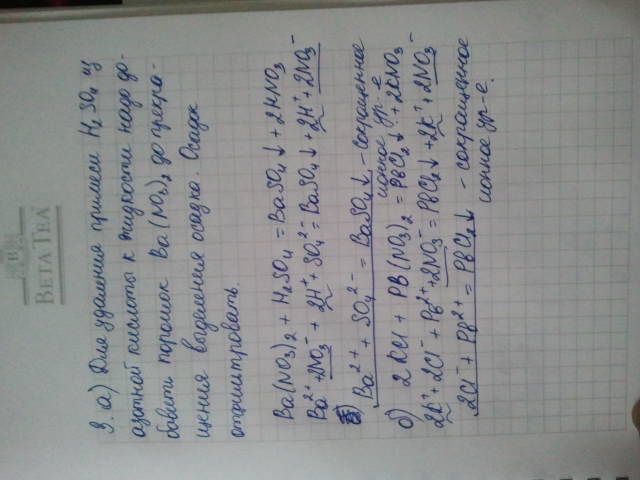 B
BETA TEA
3. а) Для удаления примеси H₂SO₄ из
азотной кислоты к жидкости надо до-
бавить порошок Ba(NO₃)₂ до прекра-
щения выделения осадка. Осадок
отфильтровать.
Ba(NO₃)₂ + H₂SO₄ = BaSO₄↓ + 2HNO₃
Ba²⁺ + 2NO₃⁻ + 2H⁺ + SO₄²⁻ = BaSO₄↓ + 2H⁺ + 2NO₃⁻
Ba²⁺ + SO₄²⁻ = BaSO₄↓ - сокращенное
ионное ур-е
б) 2KCl + Pb(NO₃)₂ = PbCl₂↓ + 2KNO₃
2K⁺ + 2Cl⁻ + Pb²⁺ + 2NO₃⁻ = PbCl₂↓ + 2K⁺ + 2NO₃⁻
2Cl⁻ + Pb²⁺ = PbCl₂↓ - сокращенное
ионное ур-е.